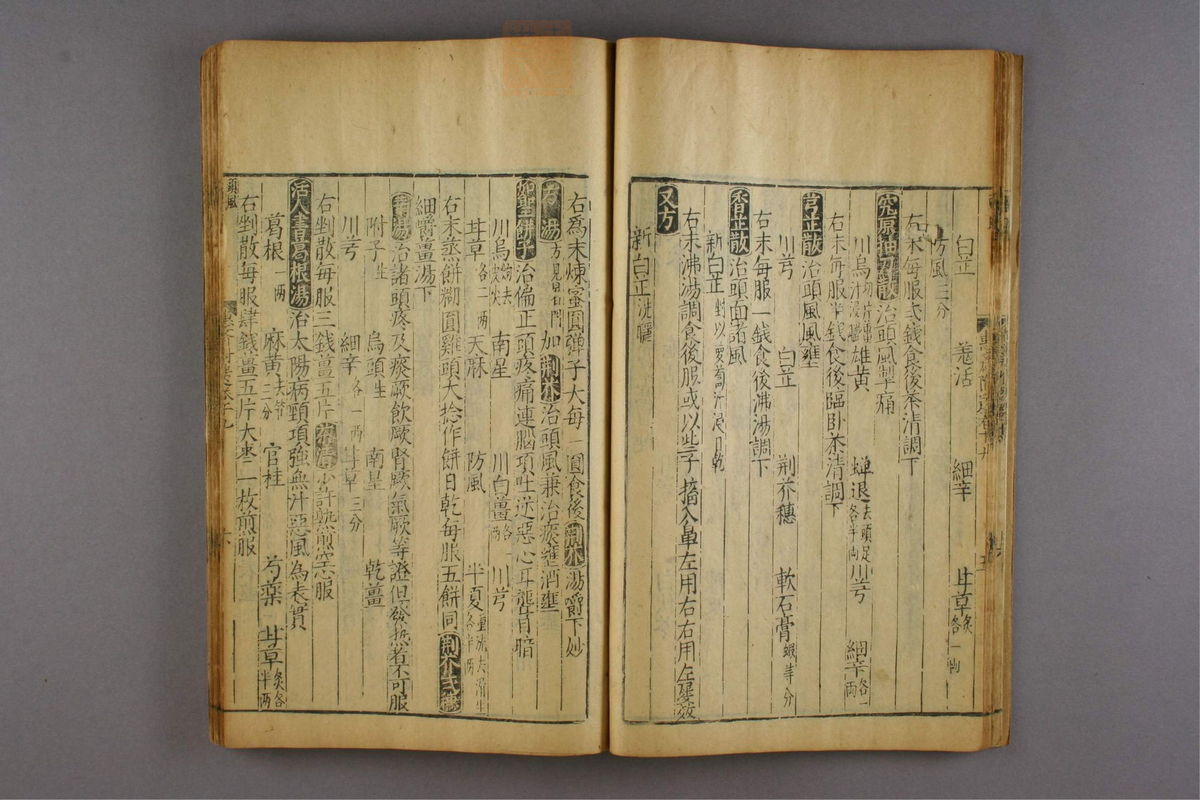 白芷 羗活 細辛 甘草炙各一両
防風三分
右末每服弍錢食後茶清調下
究原抽刀散治頭風掣痛
川烏 雄黄 蟬退去頭足各半両 川芎 細辛各一両
右末每服半錢食後臨卧茶清調下
芎芷散治頭風風壅
川芎 白芷 荆芥穗 軟石膏煆半分
右末每服一錢食後沸湯調下
香芷散治頭面諸風
新白芷剉以蘿蔔汁浸日乾
右末沸湯調食後服或以些子搐入鼻左用右右用左屢效
又方
新白芷洗曬
右為末煉蜜圓弹子大每一圓食後荆芥湯嚼下妙
方湯方見 門加荆芥治頭風兼治痰壅消壅
如聖餅子治偏正頭疼痛連腦項吐逆惡心耳聾目暗
川烏炮去皮尖 南星 川白薑各一両 川芎
甘草各二両 天麻 防風 半夏 各半両
右末蒸餅糊圓雞頭大捻作餅日乾每服五餅同荆芥弍穗
細嚼薑湯下
湯治諸頭疼及痰厥飲厥腎厥氣厥等證但發熱者不可服
附子生 烏頭生 南星 乾薑
川芎 細辛各一両 甘草三分
右剉散每服三錢薑五片茶清少許熱煎空心服
活人書葛根湯治太陽病頸項強無汁惡風為表實
葛根一両 麻黄去節三分 官桂 芍藥 甘草炙各半両
右剉散每服肆錢薑五片大棗二枚煎服
頭風